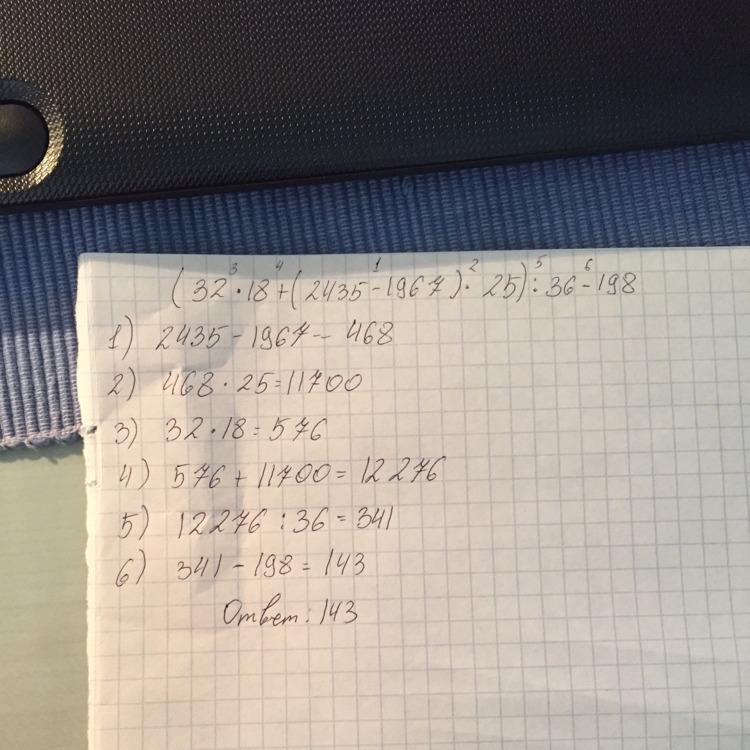 (32·18+(2435-1967)·25):36-198
3 4 1 2 5 6
1) 2435-1967- 468
2) 468·25=11700
3) 32·18=576
4) 576+11700=12276
5) 12276:36=341
6) 341-198=143
Ответ: 143